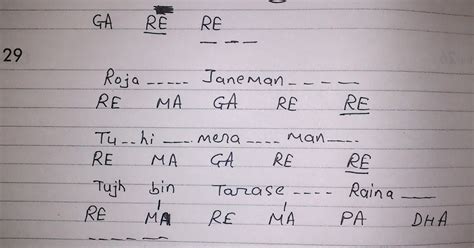 GA RE RE
_ _ _ _
29
Roja _ _ _ _ _ Janeman _ _ _ _ _
RE MA GA RE RE
Tu _ _ hi _ _ mera _ _ _ man _ _ _
RE MA GA RE RE
Tujh bin Tarase _ _ _ _ Raina _ _
RE MA RE MA PA DHA
_ _ _ _ _ _